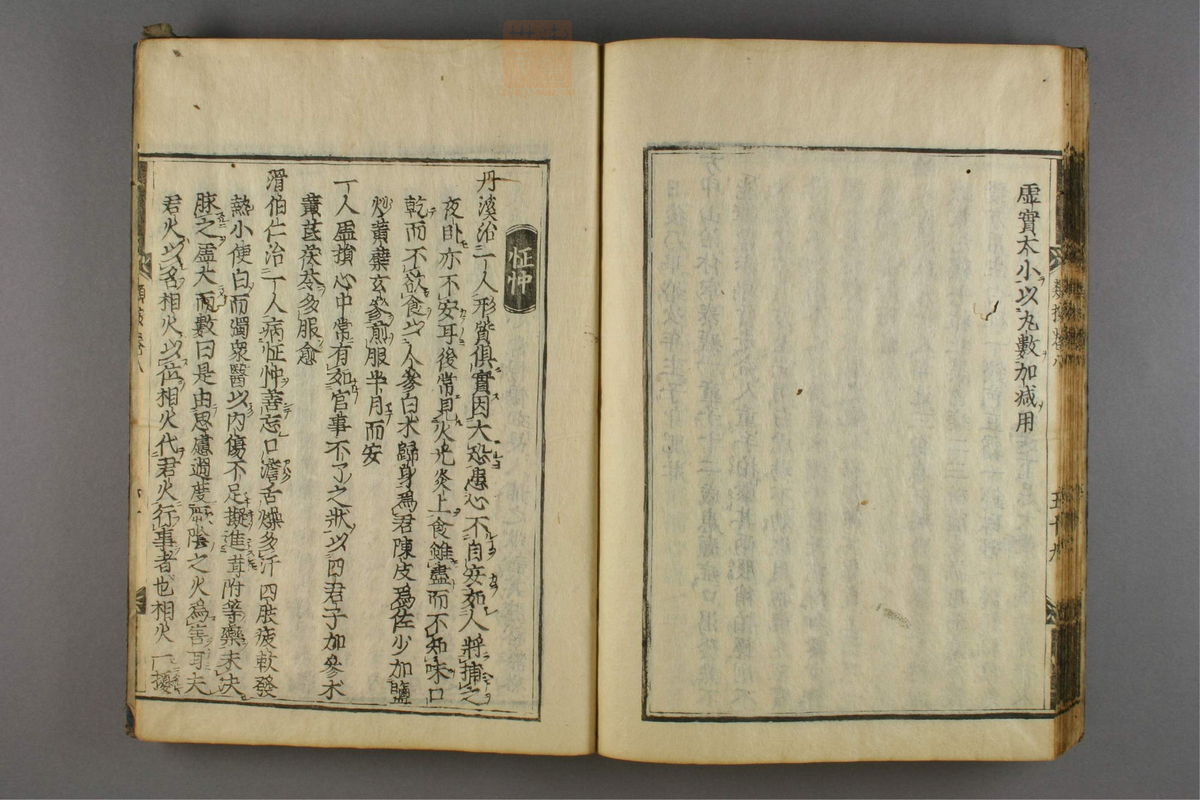 虛實大小以丸數加減用
怔忡
丹溪治一人形質俱實因大恐患心不自安如人將捕之
夜卧亦不安耳後常見火光炎上食雖盡而不知味口
乾而不欲食以人參白朮歸身爲君陳皮爲佐少加鹽
炒黃蘗玄參煎服半月而安
一人虛損心中常有如官事不了之狀以四君子加參朮
黃芪茯苓多服愈
滑伯仁治一人病怔忡善忘口澹舌燥多汗四肢疲軟發
熱小便白而濁衆醫以內傷不足擬進茸附等藥未决
脉之虛大而數曰是由思慮過度厥陰之火爲害耳夫
君火以名相火以位相火代君火行事者也相火一擾